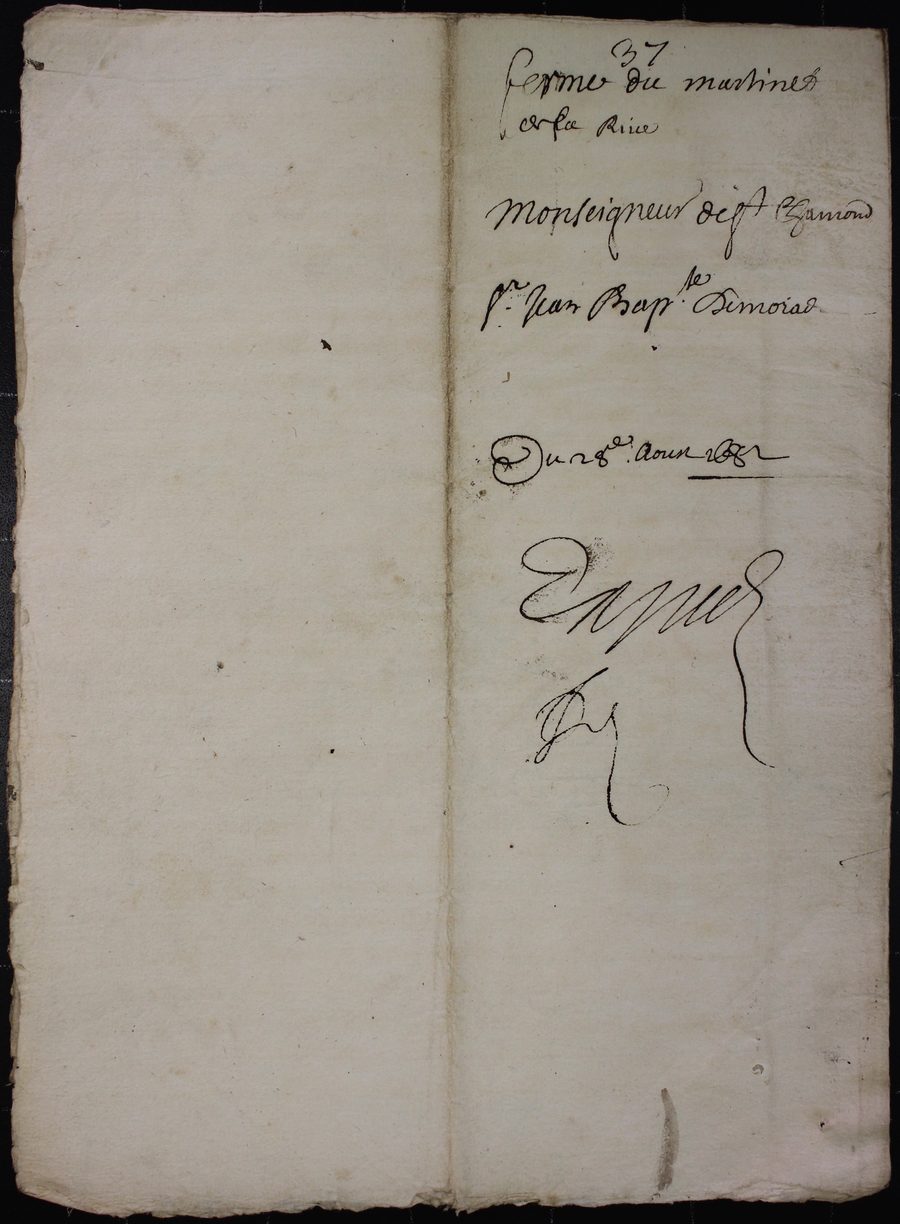 37
ferme du martinet
de la Riue
Monseigneur de St Chamond
Sr. Jean Bapte.
Du 28e. Aoust 1682